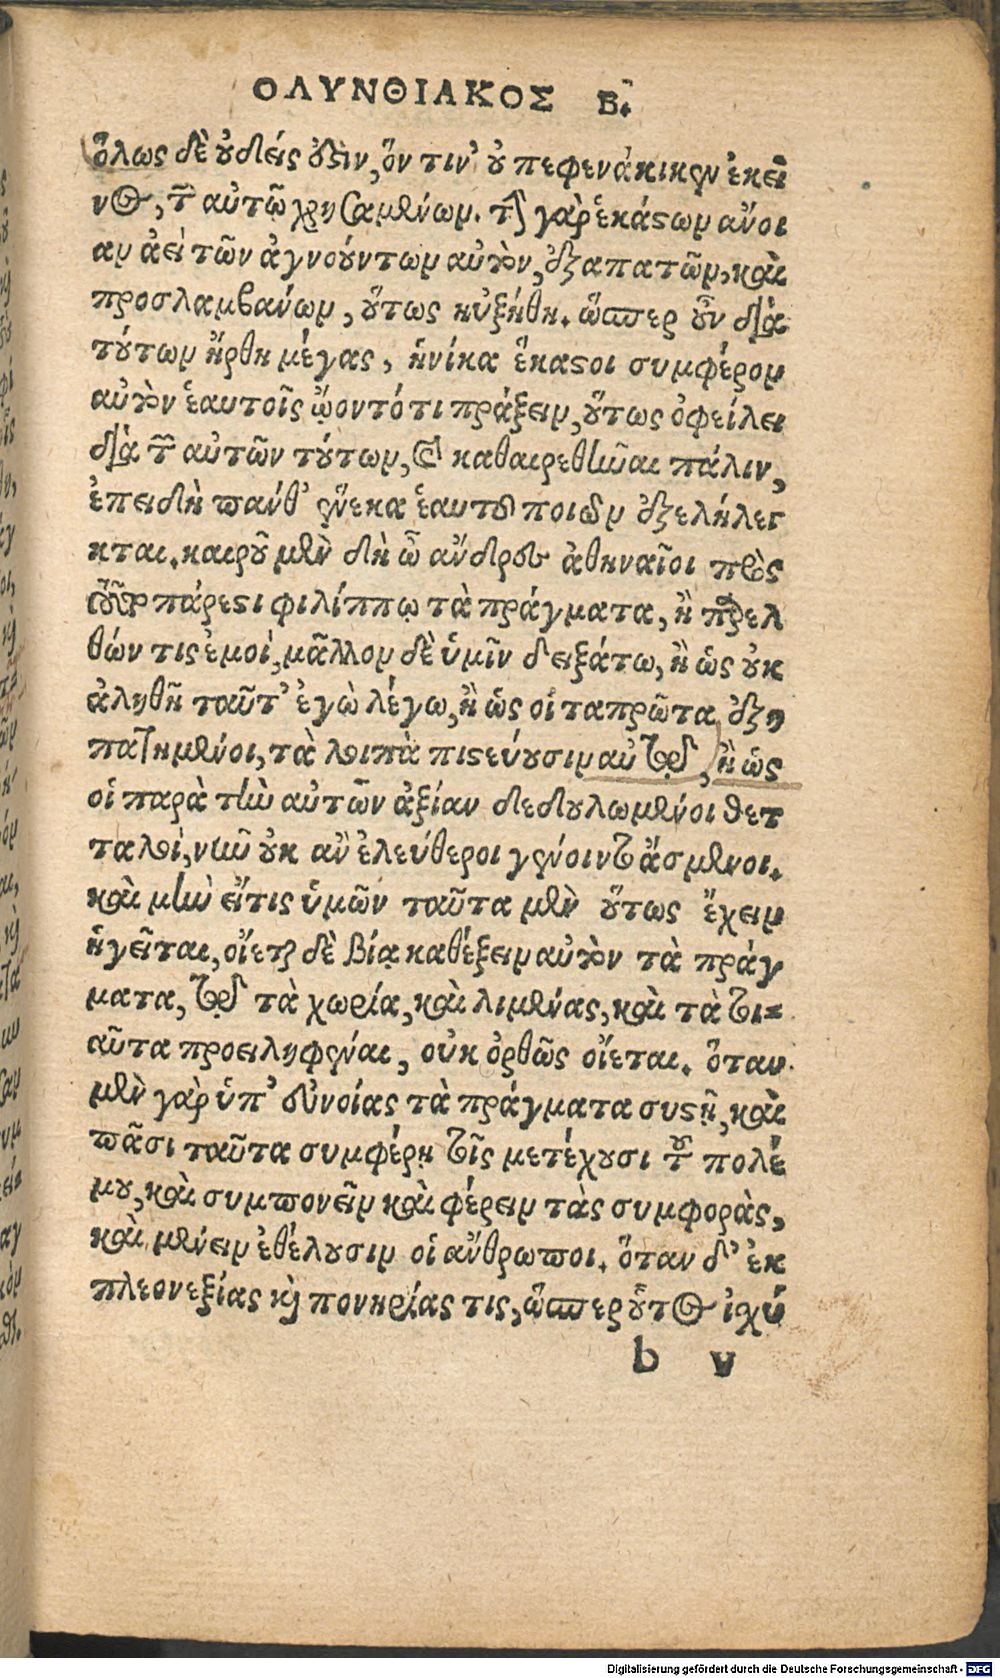 ΟΛΥΝΘΙΑΚΟΣ Β.
ὅλως δὲ οὐδείς ἐστιν, ὅν τιν' οὐ πεφενάκικεν ἐκεῖ
νος, τῶν αὐτῷ χρησαμένων. τὴν γὰρ ἑκάστων ἄνοι
αν ἀεὶ τῶν ἀγνοούντων αὐτὸν, ἐξαπατῶν, καὶ
προσλαμβάνων, οὕτως ηὐξήθη. ὥσπερ οὖν διὰ
τούτων ἤρθη μέγας, ἡνίκα ἕκαστοι συμφέρον
αὐτὸν ἑαυτοῖς ᾤοντό τι πράξειν, οὕτως ὀφείλει
διὰ τῶν αὐτῶν τούτων, καὶ καθαιρεθῆναι πάλιν,
ἐπειδὴ πάνθ' ἕνεκα ἑαυτοῦ ποιῶν ἐξελήλεγ
κται. καιροῦ μὲν δὴ ὦ ἄνδρες ἀθηναῖοι πρὸς
τοῦτο πάρεστι φιλίππῳ τὰ πράγματα, ἢ παρελ
θών τις ἐμοὶ, μᾶλλον δὲ ὑμῖν δειξάτω, ἢ ὡς οὐκ
ἀληθῆ ταῦτ' ἐγὼ λέγω, ἢ ὡς οἱ ταπρῶτα ἐξη
πατημένοι, τὰ λοιπὰ πιστεύουσιν αὐτῷ, ἢ ὡς
οἱ παρὰ τὴν αὐτῶν ἀξίαν δεδουλωμένοι θετ
ταλοὶ, νῦν οὐκ ἂν ἐλεύθεροι γένοιντο ἄσμενοι.
καὶ μὴν εἴ τις ὑμῶν ταῦτα μὲν οὕτως ἔχειν
ἡγεῖται, οἴεται δὲ βίᾳ καθέξειν αὐτὸν τὰ πράγ
ματα, τῷ τὰ χωρία, καὶ λιμένας, καὶ τὰ τοι=
αῦτα προειληφέναι, οὐκ ὀρθῶς οἴεται. ὅταν
μὲν γὰρ ὑπ' εὐνοίας τὰ πράγματα συστῇ, καὶ
πᾶσι ταῦτα συμφέρῃ τοῖς μετέχουσι τοῦ πολέ
μου, καὶ συμπονεῖν καὶ φέρειν τὰς συμφορὰς,
καὶ μένειν ἐθέλουσιν οἱ ἄνθρωποι. ὅταν δ' ἐκ
πλεονεξίας καὶ πονηρίας τις, ὥσπερ οὗτος ἰχύ
b v
Digitalisierung gefördert durch die Deutsche Forschungsgemeinschaft - DFG